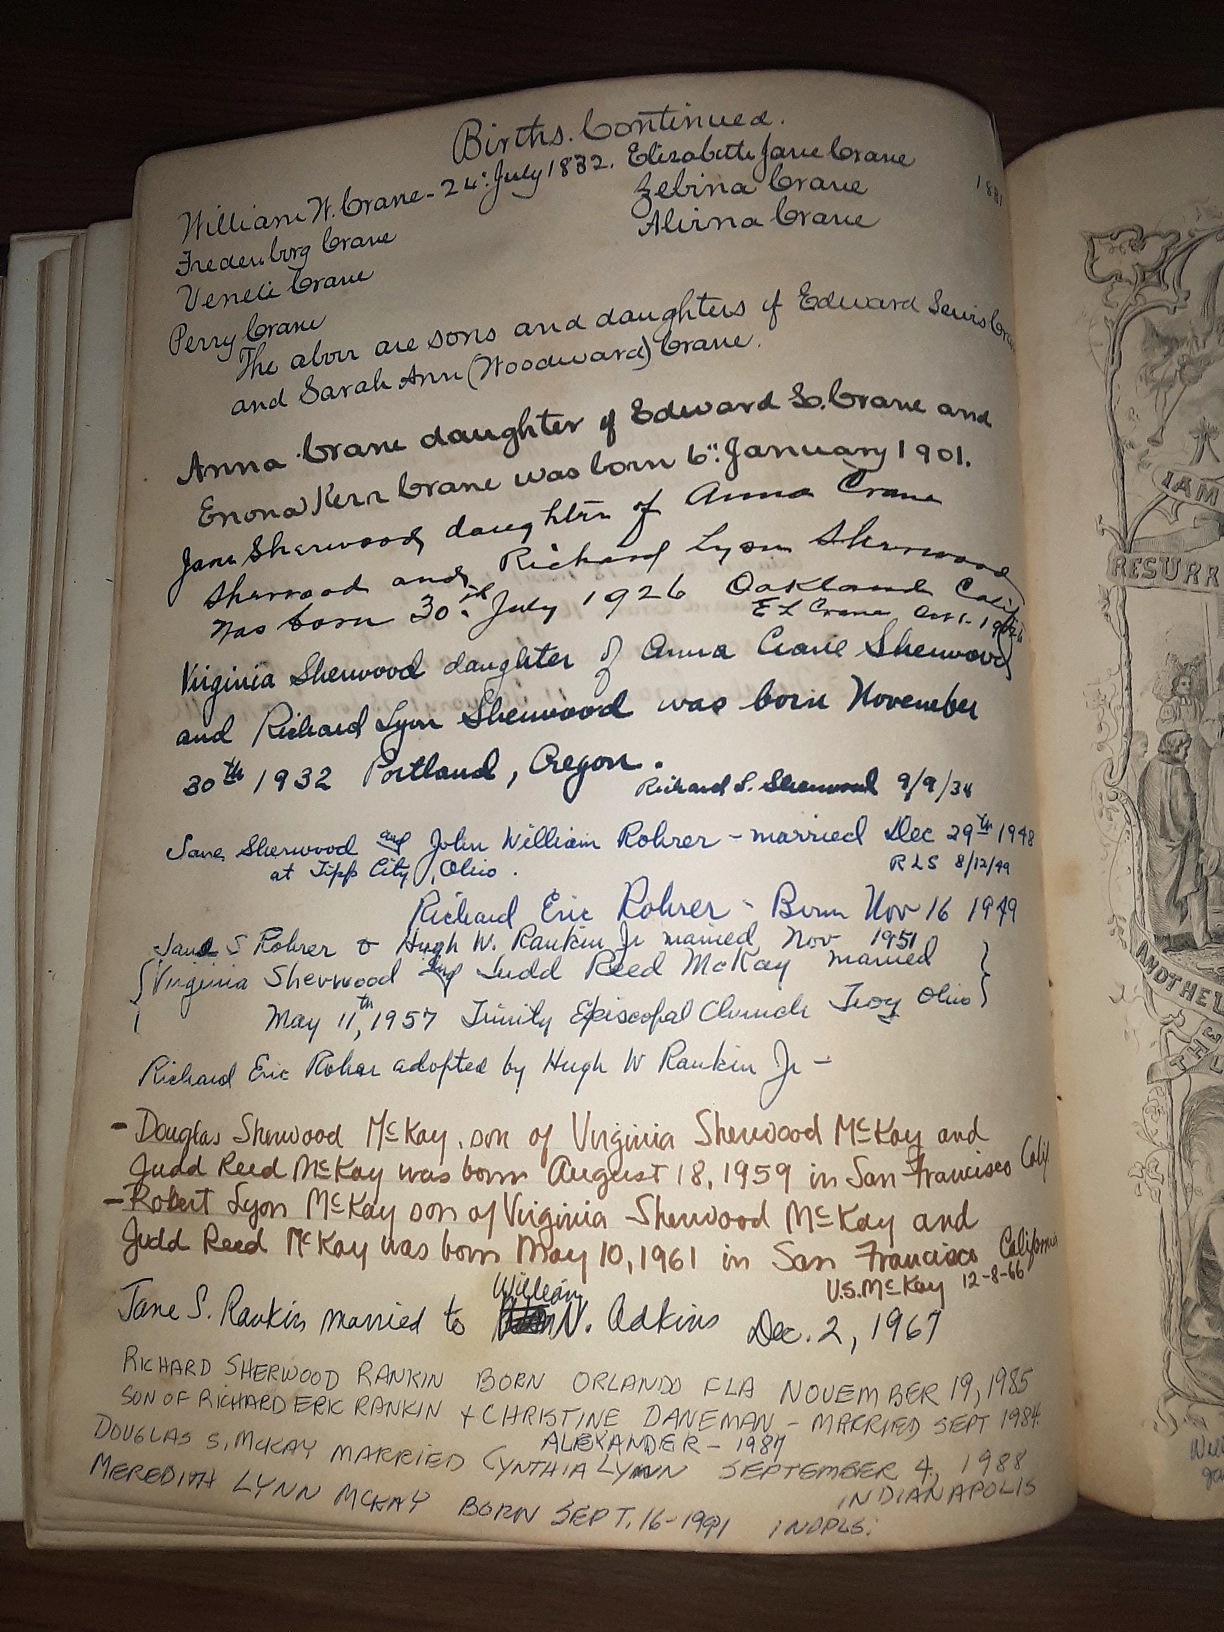 Births. Continued.
William W. Crane - 24th July 1832. Elizabeth Jane Crane
Fredenborg Crane Zebina Crane
Veneci Crane Alvina Crane
Perry Crane
The above are sons and daughters of Edward Lewis Crane
and Sarah Ann (Woodward) Crane.
Anna Crane daughter of Edward L. Crane and
Enona Kerr Crane was born 6th January 1901.
Jane Sherwood daughter of Anna Crane
Sherwood and Richard Lyon Sherwood
was born 30th July 1926 Oakland Calif
E L Crane Oct 1 - 1926
Virginia Sherwood daughter of Anna Crane Sherwood
and Richard Lyon Sherwood was born November
30th 1932 Portland, Oregon.
Richard L. Sherwood 9/9/34
Jane Sherwood and John William Rohrer - married Dec 29th 1948
at Tipp City, Ohio.
RLS 8/12/49
Richard Eric Rohrer - Born Nov 16 1949
Jane S Rohrer & Hugh W. Rankin Jr married Nov 1951
{ Virginia Sherwood and Judd Reed McKay married }
May 11th, 1957 Trinity Episcopal Church Troy Ohio
Richard Eric Rohrer adopted by Hugh W Rankin Jr -
- Douglas Sherwood McKay, son of Virginia Sherwood McKay and
Judd Reed McKay was born August 18, 1959 in San Francisco Calif
- Robert Lyon McKay son of Virginia Sherwood McKay and
Judd Reed McKay was born May 10, 1961 in San Francisco California
V.S. McKay 12-8-66
Jane S. Rankin married to William N. Adkins Dec. 2, 1967
RICHARD SHERWOOD RANKIN BORN ORLANDO FLA NOVEMBER 19, 1985
SON OF RICHARD ERIC RANKIN + CHRISTINE DANEMAN - MARRIED SEPT 1984
ALEXANDER - 1987
DOUGLAS S. MCKAY MARRIED CYNTHIA LYNN SEPTEMBER 4, 1988
INDIANAPOLIS
MEREDITH LYNN MCKAY BORN SEPT. 16 - 1991 INDPLS.
I AM
RESURR
ANOTHE
TH